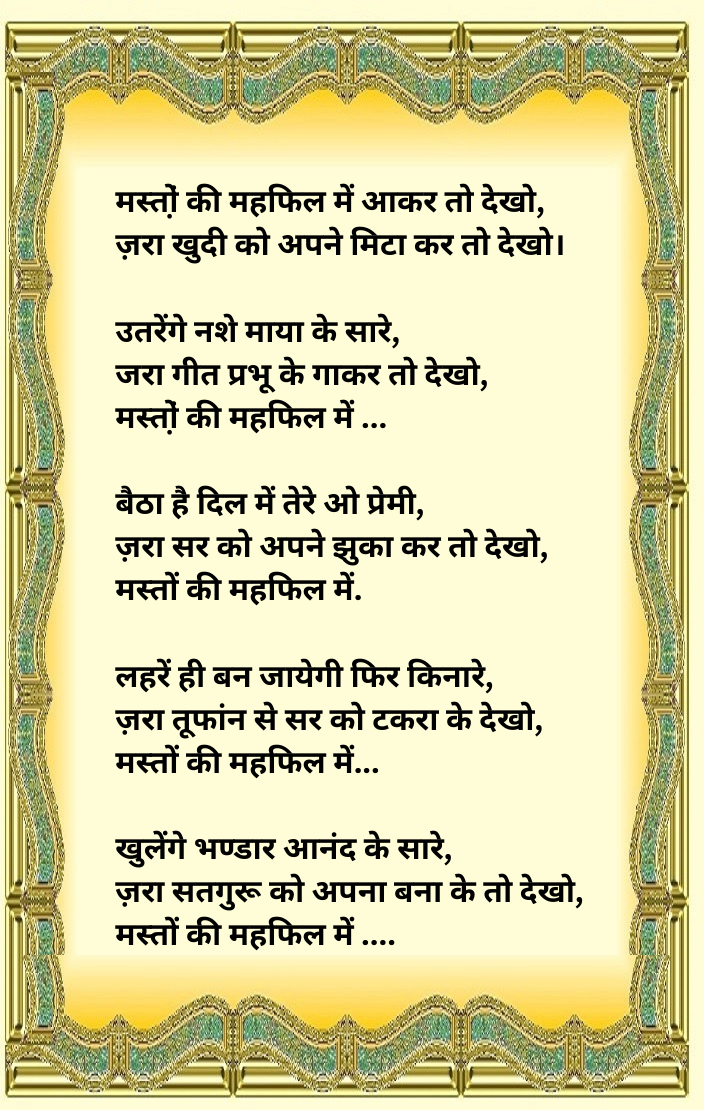 मस्तो़ं की महफिल में आकर तो देखो,
ज़रा खुदी को अपने मिटा कर तो देखो।
उतरेंगे नशे माया के सारे,
जरा गीत प्रभू के गाकर तो देखो,
मस्तो़ं की महफिल में ...
बैठा है दिल में तेरे ओ प्रेमी,
ज़रा सर को अपने झुका कर तो देखो,
मस्तों की महफिल में.
लहरें ही बन जायेगी फिर किनारे,
ज़रा तूफांन से सर को टकरा के देखो,
मस्तों की महफिल में...
खुलेंगे भण्डार आनंद के सारे,
ज़रा सतगुरू को अपना बना के तो देखो,
मस्तों की महफिल में ....